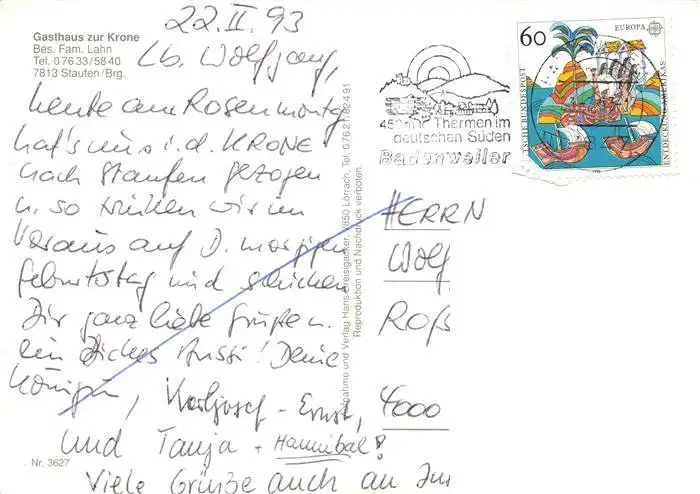 Gasthaus zur Krone
Bes. Fam. Lahn
Tel. 0 76 33/58 40
7813 Staufen/Brg.
22.II.93
Lb. Wolfgang,
heute am Rosenmontag
hat's uns i. d. KRONE
nach Staufen gezogen
u. so trinken wir im
Voraus auf D. morgigen
Geburtstag und schicken
Dir ganz liebe Grüße u.
ein dickes Bussi! Deine
Königin, Karljosef - Ernst,
und Tanja + Hannibal!
Viele Grüße auch an
Nr. 3627
Aufnahme und Verlag Hans Dreisigacker, 7850 Lörrach, Tel. 0 76 21/
Reproduktion und Nachdruck verboten.
Thermen im
deutschen Süden
Badenweiler
60
EUROPA
DEUTSCHE BUNDESPOST
ENTDECKUNG AMERIKAS
HERRN
Wolf
Roß
4000